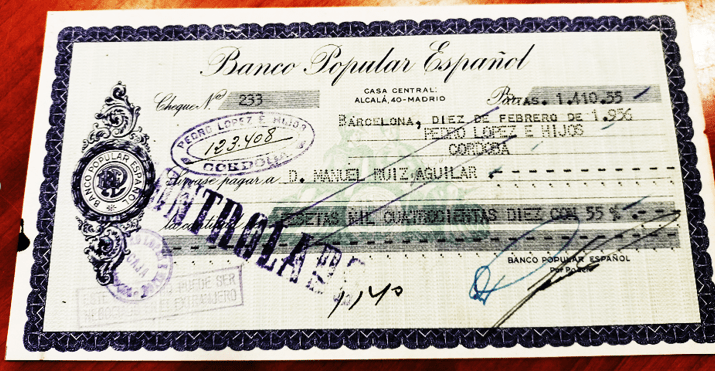 Banco Popular Español
CASA CENTRAL:
ALCALÁ, 40-MADRID
Cheque Nº 233
PTAS. 1.410.55
BARCELONA, DIEZ DE FEBRERO DE 1.956
PEDRO LOPEZ E HIJOS
CORDOBA
PEDRO LOPEZ E HIJOS
123.408
CORDOBA
BANCO POPULAR ESPAÑOL
pagar a D. MANUEL RUIZ AGUILAR
PESETAS MIL CUATROCIENTAS DIEZ CON 55 %
CONTROLADO
CAJA
BANCO POPULAR ESPAÑOL
Por Poder
PUEDE SER
NEGOCIADO EN EL EXTRANJERO